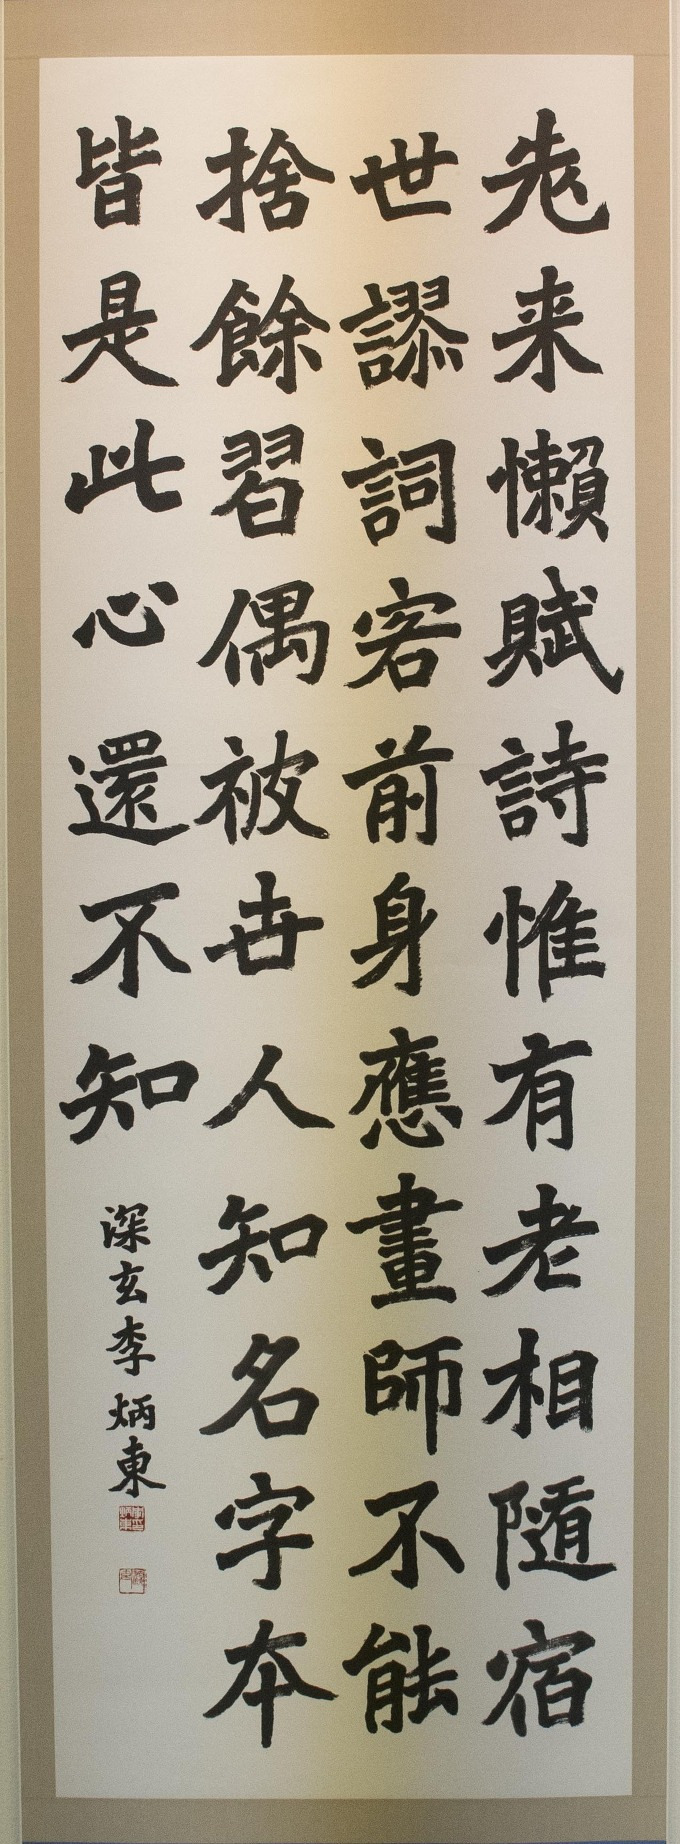 老来懶賦詩惟有老相隨宿
世謬詞客前身應畫師不能
捨餘習偶被世人知名字本
皆是此心還不知
深玄李炳東